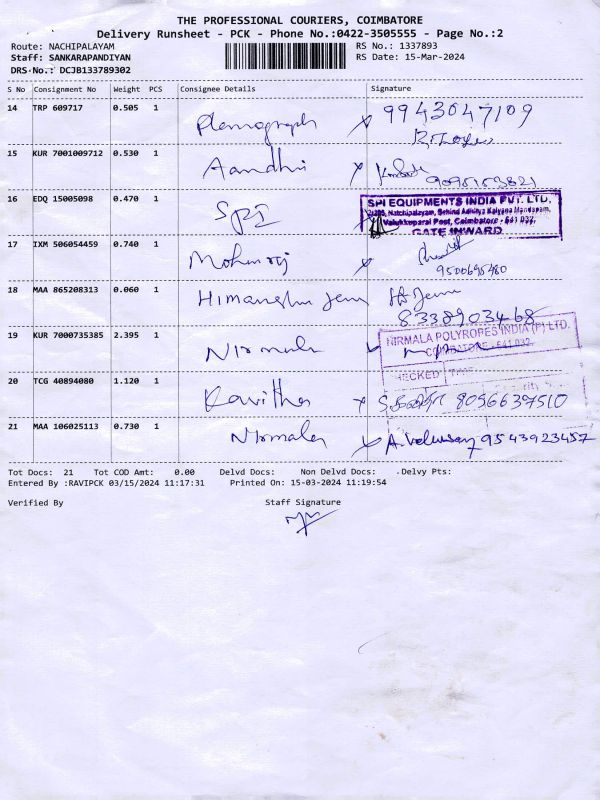 THE PROFESSIONAL COURIERS, COIMBATORE
Delivery Runsheet - PCK - Phone No.:0422-3505555 - Page No.:2
Route: NACHIPALAYAM RS No.: 1337893
Staff: SANKARAPANDIYAN RS Date: 15-Mar-2024
DRS-No.: DCJB133789302
S No Consignment No Weight PCS Consignee Details Signature
14 TRP 609717 0.505 1 9943047109
15 KUR 7001009712 0.530 1 Aandhi
16 EDQ 15005098 0.470 1 SPI
SPI EQUIPMENTS INDIA PVT. LTD.
Valukkuparai Post, Coimbatore - 641 032.
GATE INWARD
17 IXM 506054459 0.740 1 Mohanraj
9500695480
18 MAA 865208313 0.060 1 Himanshu Jena
8338903468
19 KUR 7000735385 2.395 1 Nirmala
NIRMALA POLYROPES INDIA (P) LTD.
COIMBATORE - 641 032.
CHECKED
20 TCG 40894080 1.120 1 Kavitha 8056637510
21 MAA 106025113 0.730 1 Nirmala 9543923457
Tot Docs: 21 Tot COD Amt: 0.00 Delvd Docs: Non Delvd Docs: .Delvy Pts:
Entered By :RAVIPCK 03/15/2024 11:17:31 Printed On: 15-03-2024 11:19:54
Verified By Staff Signature